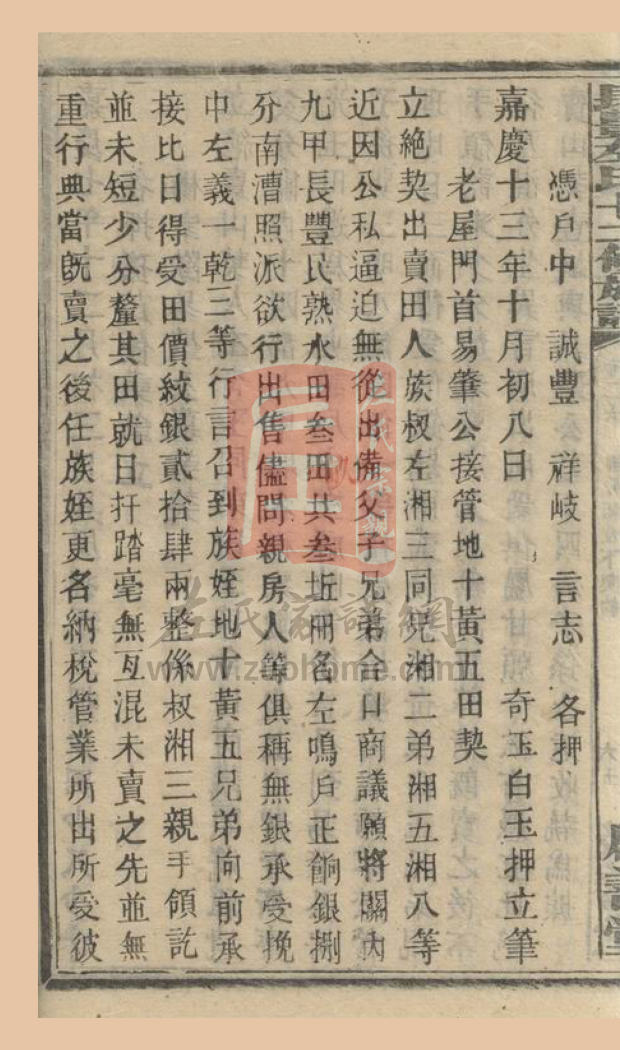 憑戶中 誠豐 祥岐 言志 各押
嘉慶十三年十月初八日 奇玉白玉押立筆
老屋門首易筆公接管地十黃五田契
立絕契出賣田人族叔左湘三同兄湘二弟湘五湘八等
近因公私逼迫無從出備父子兄弟合口商議願將關內
九甲長豐民熟水田叁田共叁坵冊名左鳴戶正餉銀捌
分南漕照派欲行出售儘問親房人等俱稱無銀承受挽
中左義一乾三等行言召到族姪地十黃五兄弟向前承
接比日得受田價紋銀貳拾肆兩整係叔湘三親手領訖
並未短少分釐其田就日扞踏毫無互混未賣之先並無
重行典當旣賣之後任族姪更名納稅管業所出所受彼
左氏族譜網
www.zuohome.com